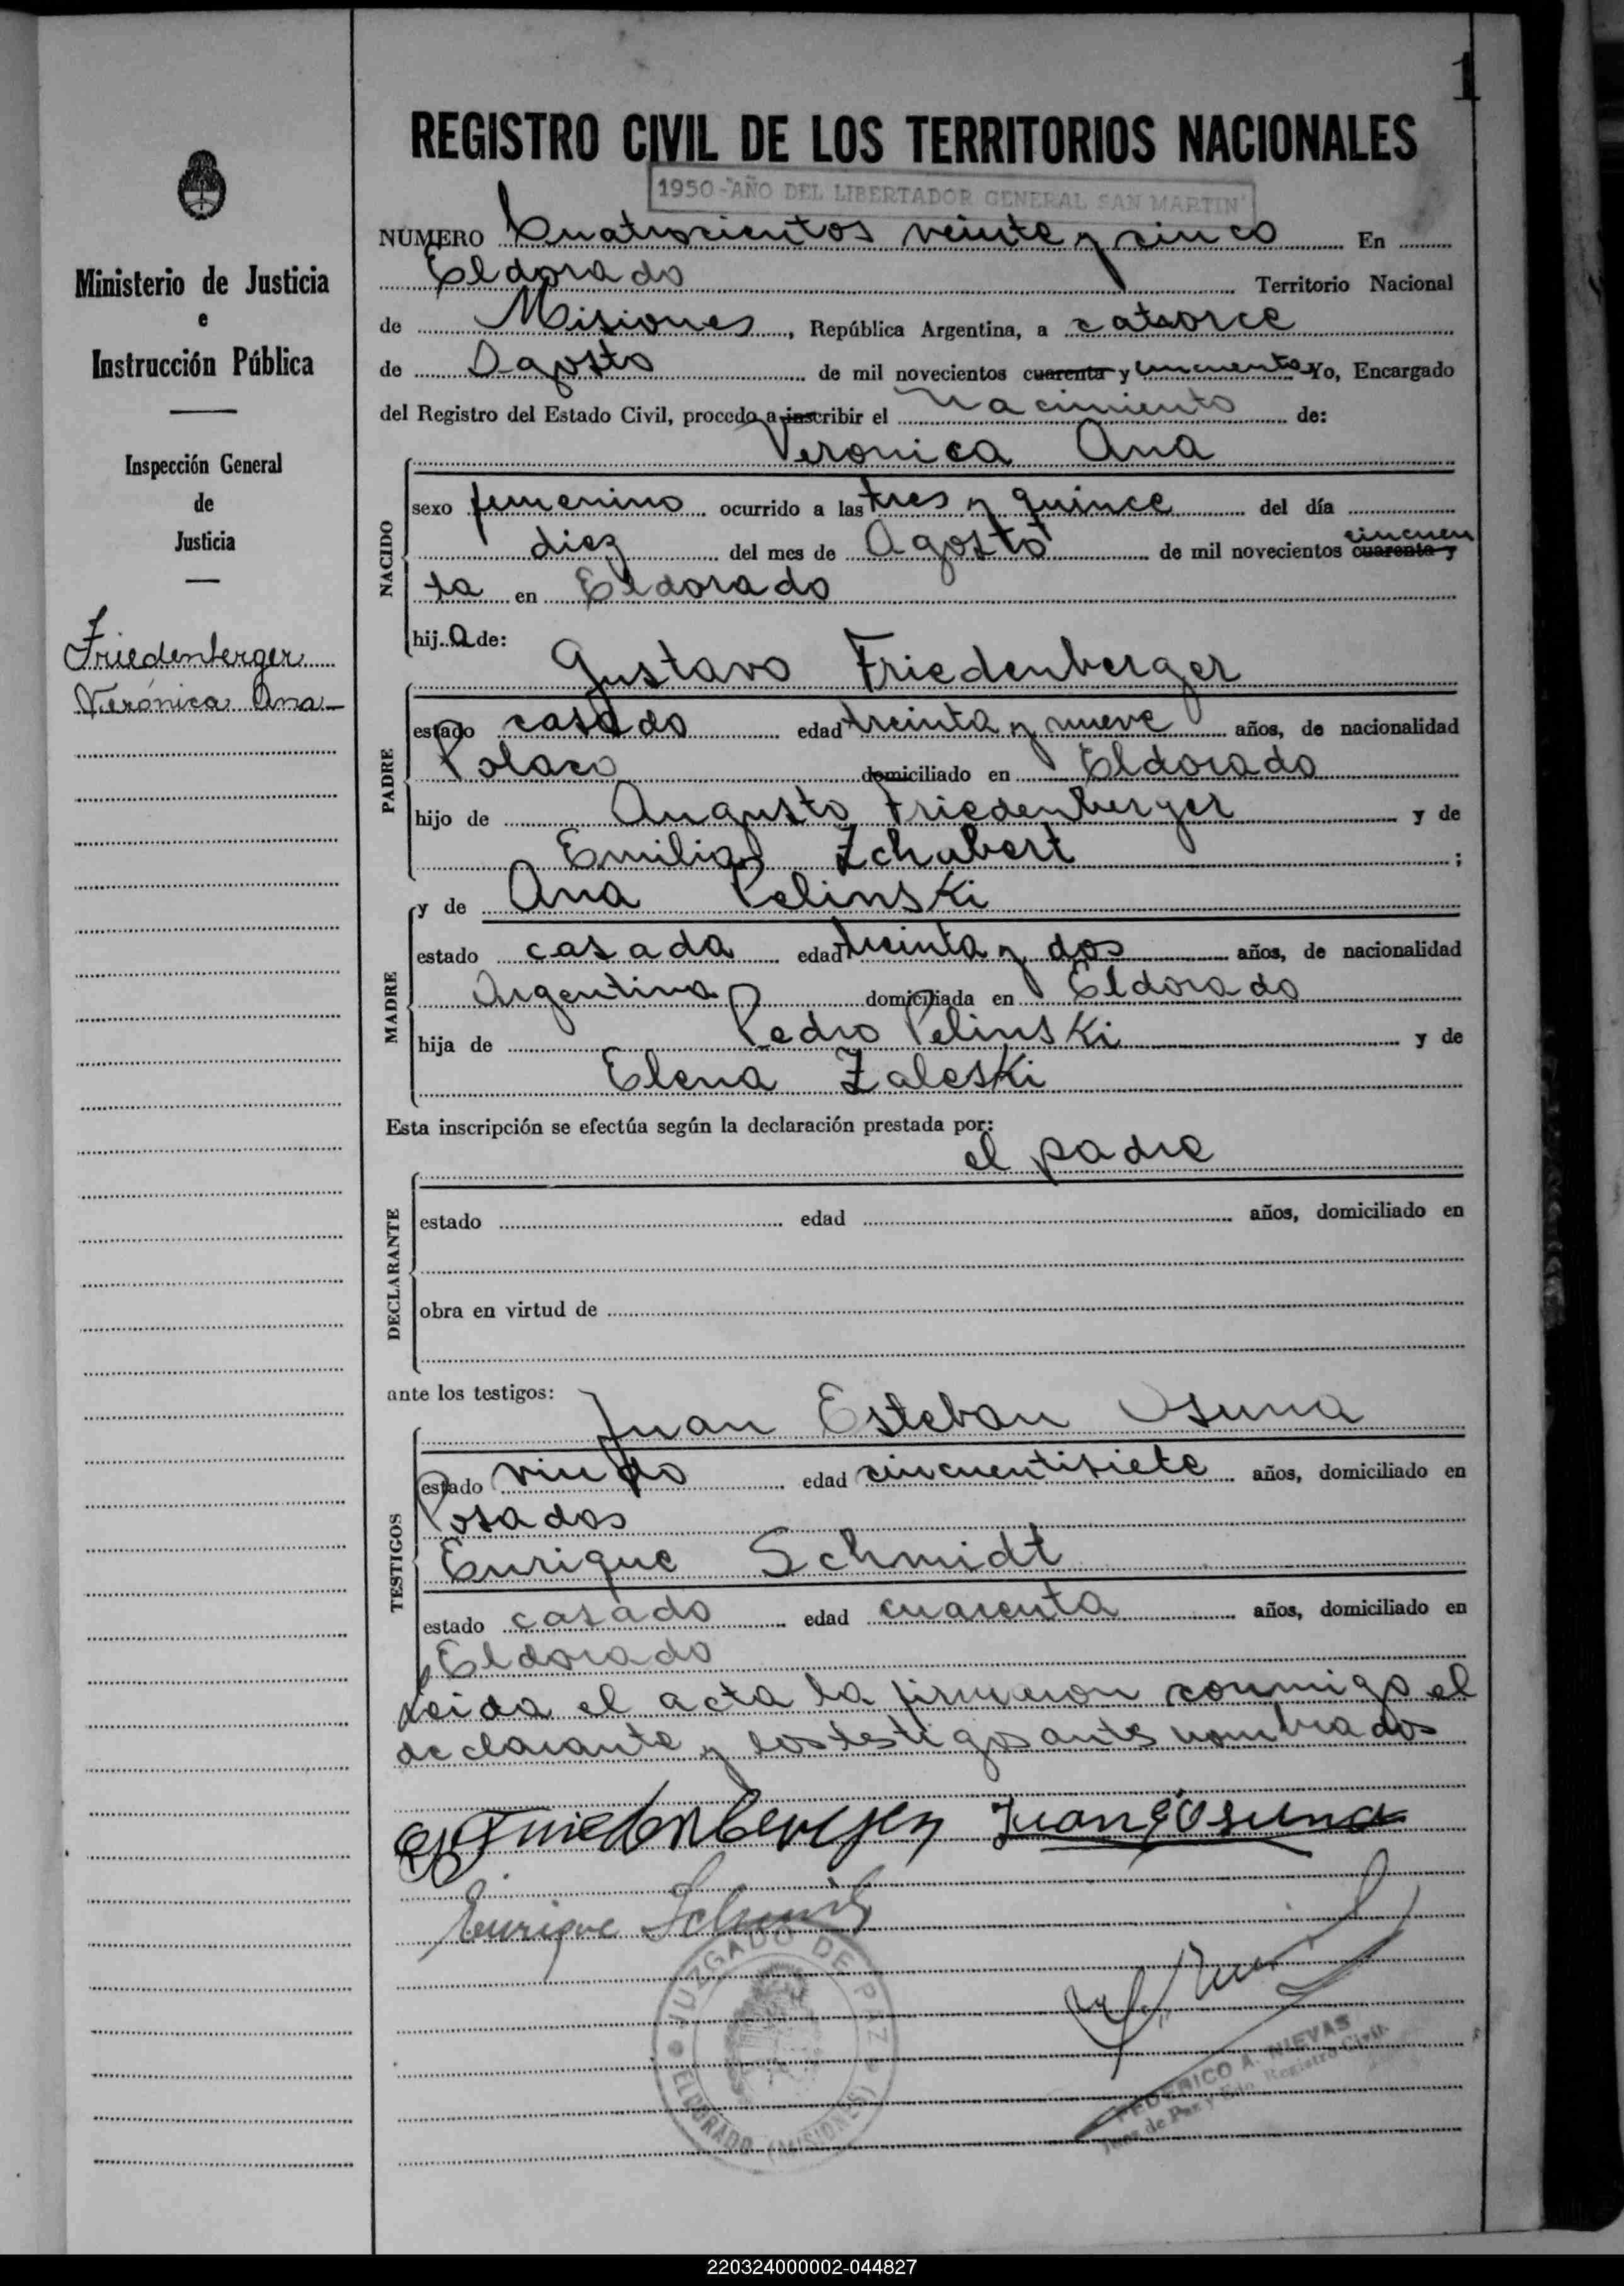 1
REGISTRO CIVIL DE LOS TERRITORIOS NACIONALES
1950-"AÑO DEL LIBERTADOR GENERAL SAN MARTIN"
Ministerio de Justicia
e
Instrucción Pública
Inspección General
de
Justicia
Friedenberger
Verónica Ana
NUMERO Cuatrocientos veinte y cinco En
Eldorado Territorio Nacional
de Misiones, República Argentina, a catorce
de Agosto de mil novecientos cuarenta y cincuenta Yo, Encargado
del Registro del Estado Civil, procedo a inscribir el nacimiento de:
Veronica Ana
NACIDO
sexo femenino ocurrido a las tres y quince del día
diez del mes de Agosto de mil novecientos cuarenta y cincuen
ta en Eldorado
hij a de:
Gustavo Friedenberger
PADRE
estado casado edad treinta y nueve años, de nacionalidad
Polaco domiciliado en Eldorado
hijo de Augusto Friedenberger y de
Emilia Zchabert ;
y de Ana Pelinski
MADRE
estado casada edad treinta y dos años, de nacionalidad
Argentina domiciliada en Eldorado
hija de Pedro Pelinski y de
Elena Zaleski
Esta inscripción se efectúa según la declaración prestada por:
el padre
DECLARANTE
estado edad años, domiciliado en
obra en virtud de
ante los testigos:
Juan Esteban Osuna
TESTIGOS
estado viudo edad cincuentisiete años, domiciliado en
Posadas
Enrique Schmidt
estado casado edad cuarenta años, domiciliado en
Eldorado
Leida el acta la firmaron conmigo el
declarante y los testigos antes nombrados
Friedenberger Juan E Osuna
Enrique Schmidt
JUZGADO DE PAZ
ELDORADO (MISIONES)
FEDERICO A. NUEVAS
Juez de Paz y Edo. Registro Civil
220324000002-044827